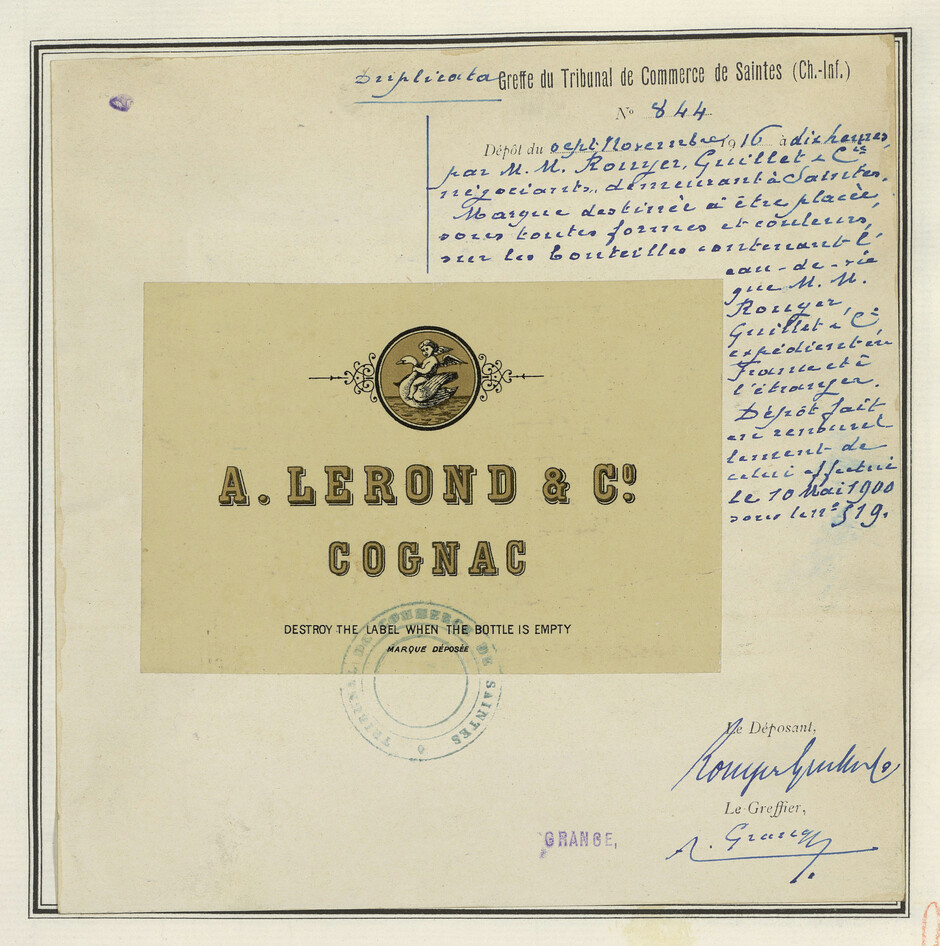 Duplicata Greffe du Tribunal de Commerce de Saintes (Ch.-Inf.)
No 844
Dépôt du sept Novembre 1916 à dix heures,
par M. M. Rouyer, Guillet & Cie
négociants, demeurant à Saintes.
Marque destinée à être placée,
sous toutes formes et couleurs,
sur les bouteilles contenant l'
eau-de-vie
que M. M.
Rouyer,
Guillet & Cie
expédient en
France et à
l'étranger.
Dépôt fait
en renouvel
lement de
celui effectué
le 10 Mai 1900
sous le no 519.
A. LEROND & Co.
COGNAC
DESTROY THE LABEL WHEN THE BOTTLE IS EMPTY
MARQUE DÉPOSÉE
TRIBUNAL DE COMMERCE DE SAINTES
Le Déposant,
Rouyer Guillet & Co
Le Greffier,
GRANGE,
A. Grange